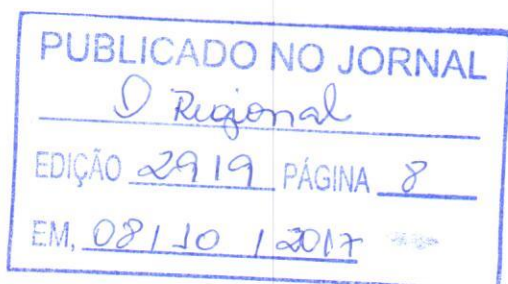 PUBLICADO NO JORNAL
O Regional
EDIÇÃO 2919 PÁGINA 8
EM, 08/10/2017